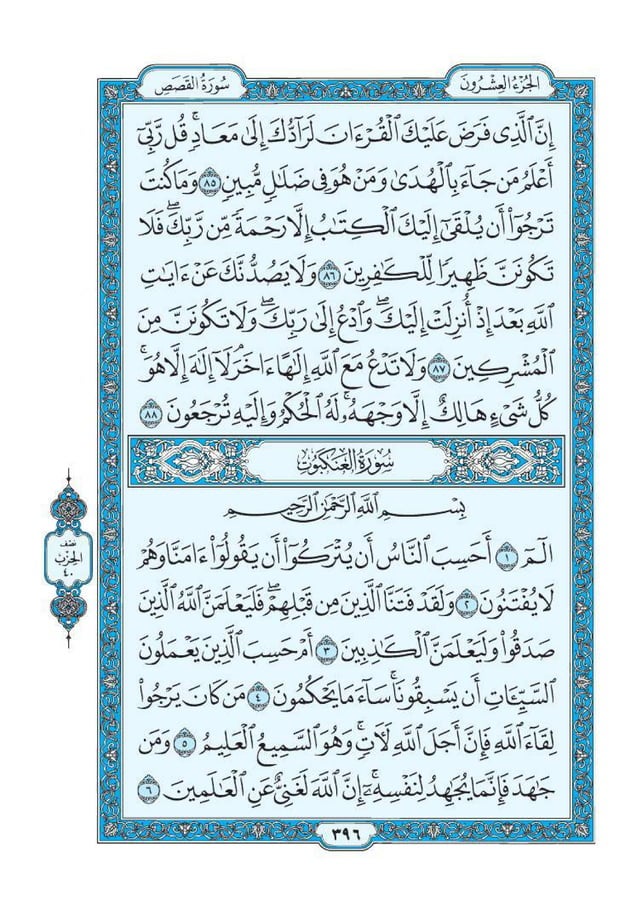 الجُزْءُ العِشْرُونَ
سُورَةُ القَصَصِ
إِنَّ ٱلَّذِى فَرَضَ عَلَيْكَ ٱلْقُرْءَانَ لَرَآدُّكَ إِلَىٰ مَعَادٍۚ قُل رَّبِّىٓ
أَعْلَمُ مَن جَآءَ بِٱلْهُدَىٰ وَمَنْ هُوَ فِى ضَلَٰلٍ مُّبِينٍ ٨٥ وَمَا كُنتَ
تَرْجُوٓا۟ أَن يُلْقَىٰٓ إِلَيْكَ ٱلْكِتَٰبُ إِلَّا رَحْمَةً مِّن رَّبِّكَۖ فَلَا
تَكُونَنَّ ظَهِيرًا لِّلْكَٰفِرِينَ ٨٦ وَلَا يَصُدُّنَّكَ عَنْ ءَايَٰتِ
ٱللَّهِ بَعْدَ إِذْ أُنزِلَتْ إِلَيْكَۖ وَٱدْعُ إِلَىٰ رَبِّكَۖ وَلَا تَكُونَنَّ مِنَ
ٱلْمُشْرِكِينَ ٨٧ وَلَا تَدْعُ مَعَ ٱللَّهِ إِلَٰهًا ءَاخَرَۘ لَآ إِلَٰهَ إِلَّا هُوَۚ
كُلُّ شَىْءٍ هَالِكٌ إِلَّا وَجْهَهُۥۚ لَهُ ٱلْحُكْمُ وَإِلَيْهِ تُرْجَعُونَ ٨٨
سُورَةُ العَنكَبُوتِ
بِسْمِ ٱللَّهِ ٱلرَّحْمَٰنِ ٱلرَّحِيمِ
الٓمٓ ١ أَحَسِبَ ٱلنَّاسُ أَن يُتْرَكُوٓا۟ أَن يَقُولُوٓا۟ ءَامَنَّا وَهُمْ
لَا يُفْتَنُونَ ٢ وَلَقَدْ فَتَنَّا ٱلَّذِينَ مِن قَبْلِهِمْۖ فَلَيَعْلَمَنَّ ٱللَّهُ ٱلَّذِينَ
صَدَقُوا۟ وَلَيَعْلَمَنَّ ٱلْكَٰذِبِينَ ٣ أَمْ حَسِبَ ٱلَّذِينَ يَعْمَلُونَ
ٱلسَّيِّـَٔاتِ أَن يَسْبِقُونَاۚ سَآءَ مَا يَحْكُمُونَ ٤ مَن كَانَ يَرْجُوا۟
لِقَآءَ ٱللَّهِ فَإِنَّ أَجَلَ ٱللَّهِ لَءَاتٍۚ وَهُوَ ٱلسَّمِيعُ ٱلْعَلِيمُ ٥ وَمَن
جَٰهَدَ فَإِنَّمَا يُجَٰهِدُ لِنَفْسِهِۦٓۚ إِنَّ ٱللَّهَ لَغَنِىٌّ عَنِ ٱلْعَٰلَمِينَ ٦
نصف
الحِزْبِ
٤٠
٣٩٦